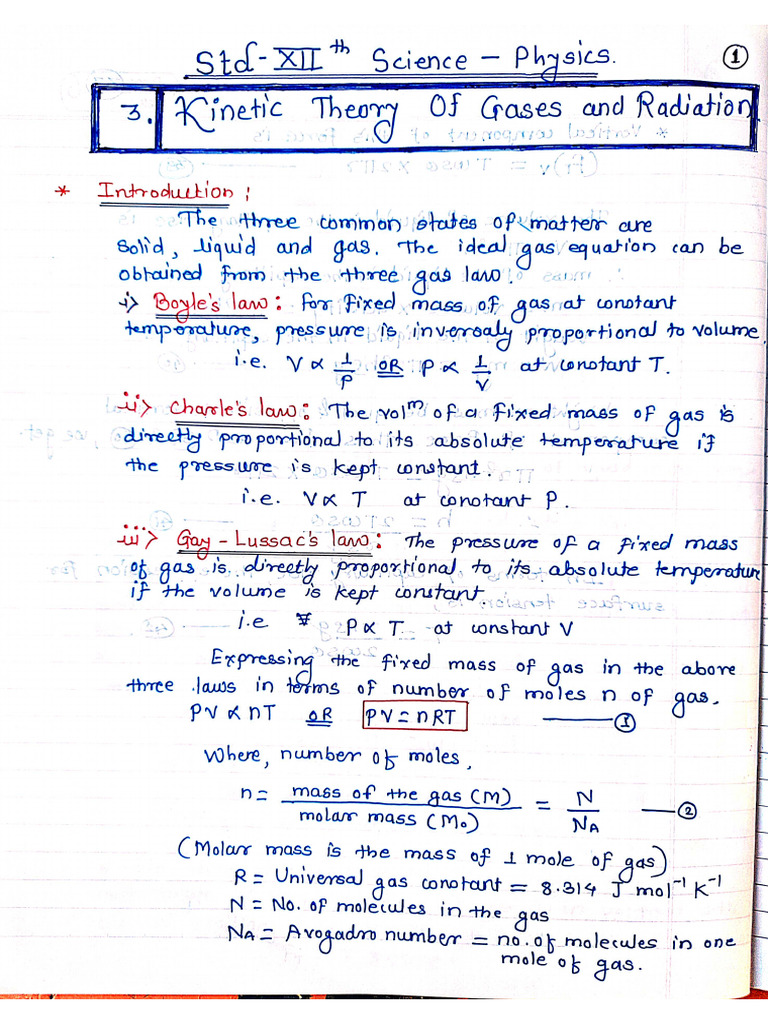 Std-XIIth Science - Physics. 1
3. Kinetic Theory Of Gases and Radiation.
* Introduction :
The three common states of matter are
solid, liquid and gas. The ideal gas equation can be
obtained from the three gas law.
i> Boyle's law: for fixed mass of gas at constant
temperature, pressure is inversaly proportional to volume
i.e. V ∝ 1/P OR P ∝ 1/V at constant T.
ii> Charle's law: The volm of a fixed mass of gas is
directly proportional to its absolute temperature if
the pressure is kept constant.
i.e. V ∝ T at constant P.
iii> Gay-Lussac's law: The pressure of a fixed mass
of gas is directly proportional to its absolute temperatur
if the volume is kept constant.
i.e P ∝ T at constant V
Expressing the fixed mass of gas in the above
three laws in terms of number of moles n of gas.
PV ∝ nT OR PV = nRT —— 1
Where, number of moles,
n = mass of the gas (M) / molar mass (Mo) = N / NA —— 2
(Molar mass is the mass of 1 mole of gas)
R = Universal gas constant = 8.314 J mol⁻¹ K⁻¹
N = No. of molecules in the gas
NA = Avogadro number = no. of molecules in one
mole of gas.